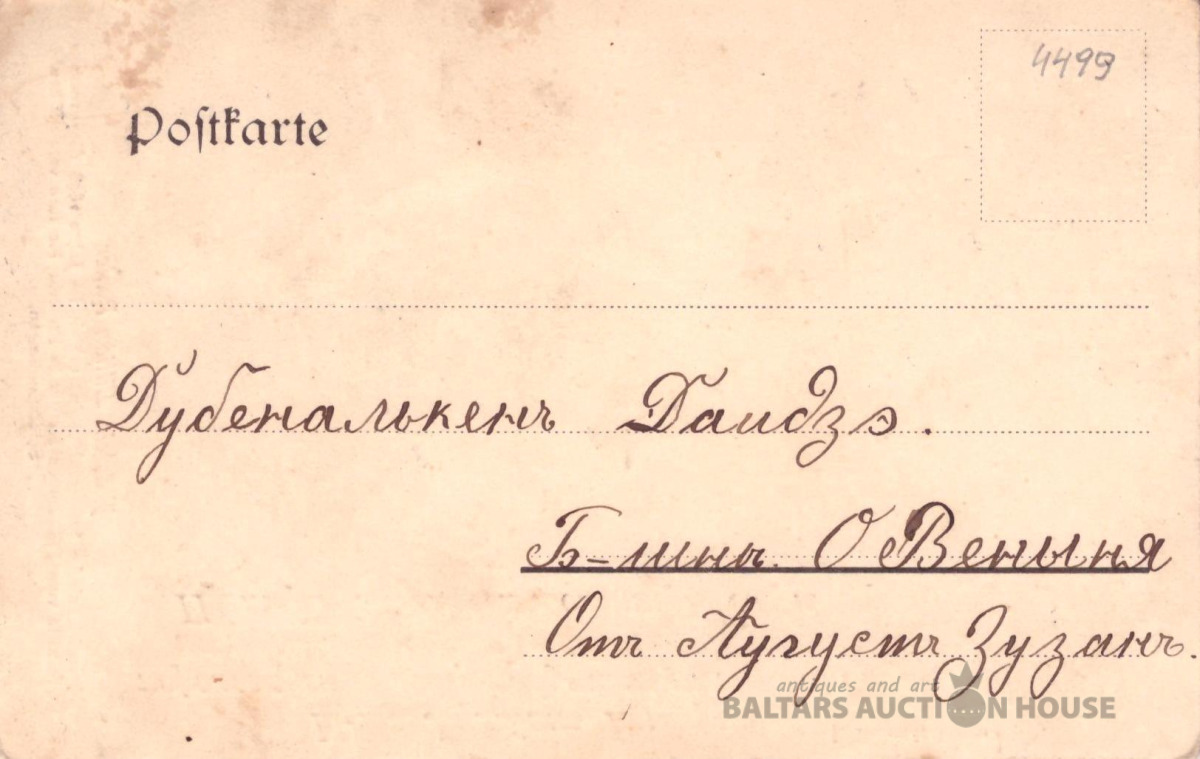 4499
Postkarte
Дубеналькенъ Даудзэ.
Б-шнъ. О Веныня
Отъ Аугустъ Зузанъ.
antiques and art
BALTARS AUCTION HOUSE